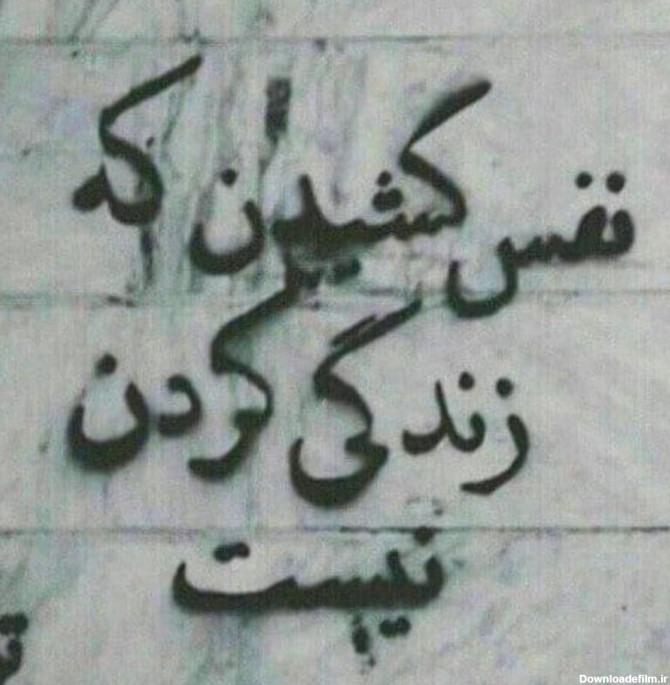 نفس کشیدن که
زندگی کردن
نیست
Downloadefilm.ir